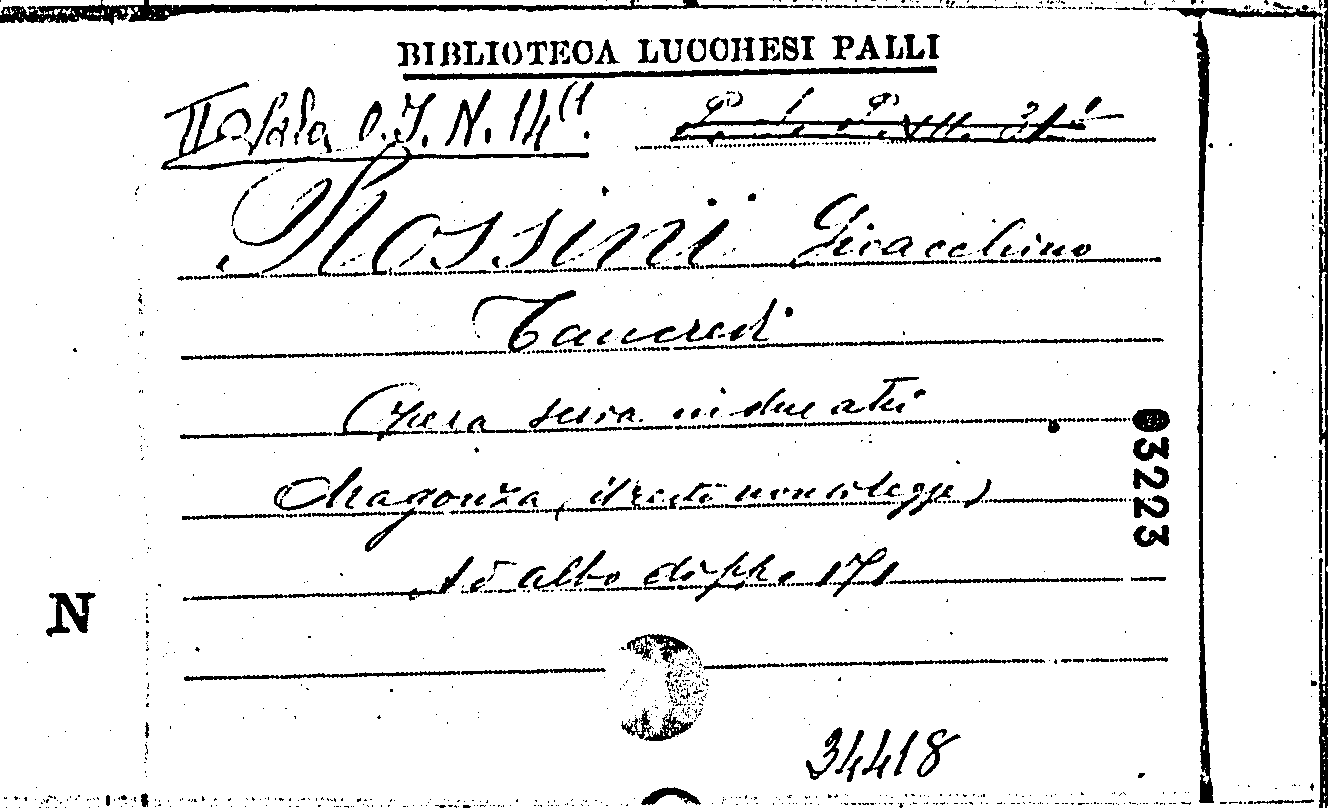 BIBLIOTECA LUCCHESI PALLI
II Sala O.I.N. 14(1.
Rossini Gioacchino
Tancredi
Opera seria in due atti
(il resto non si legge)
albo di pp. 171
03223
N
34418